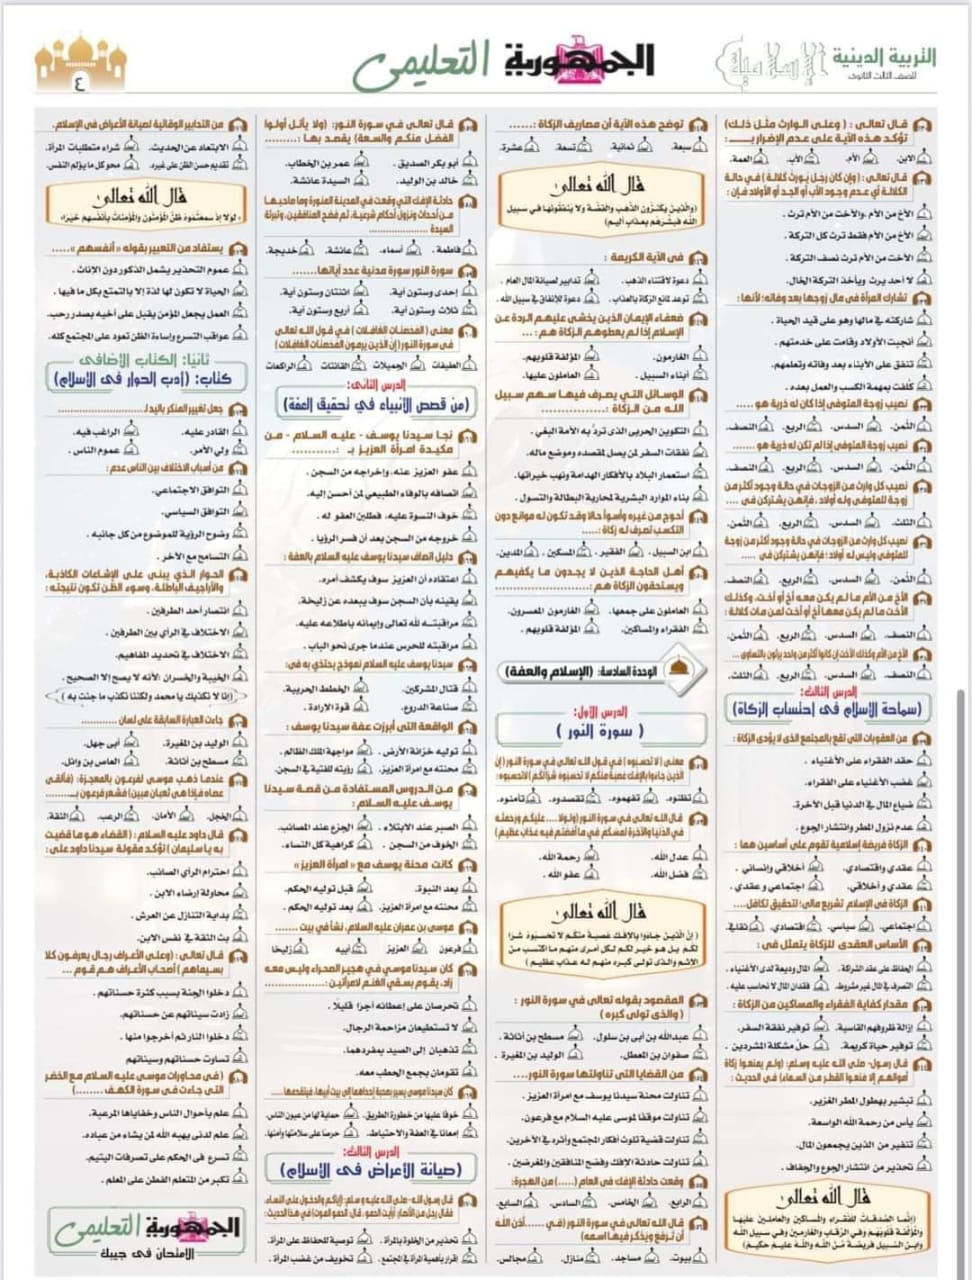 التربية الدينية
الإسلامية
للصف الثالث الثانوى
الجمهورية التعليمى
٤
قال تعالى : ( وعلى الوارث مثل ذلك)
تؤكد هذه الآية على عدم الإضرار بـ.....:
الابن. الأم. الأب. العمة.
قال تعالى: (وإن كان رجل يورث كلالة) في حالة
الكلالة أي عدم وجود الأب أو الجد أو الأولاد فإن:
الأخ من الأم .والأخت من الأم ترث .
الأخ من الأم فقط ترث كل التركة .
الأخت من الأم ترث نصف التركة .
لا أحد يرث ويأخذ التركة الخال.
تشارك المرأة فى مال زوجها بعد وفاته؛ لأنها:
شاركته في مالها وهو على قيد الحياة .
أنجبت الأولاد وقامت على خدمتهم .
تنفق على الأبناء بعد وفاته وتعلمهم.
كلفت بمهمة الكسب والعمل بعده .
نصيب زوجة المتوفى إذا كان له ذرية هو ......
الثمن. السدس. الربع. النصف.
نصيب زوجة المتوفى إذا لم تكن له ذرية هو ......
الثمن. السدس. الربع. النصف.
نصيب كل وارث من الزوجات في حالة وجود أكثر من
زوجة للمتوفى وله أولاد . فإنهن يشتركن في ....
الثلث. السدس. الربع. الثمن.
نصيب كل وارث من الزوجات في حالة وجود أكثر من زوجة
للمتوفى وليس له أولاد : فإنهن يشتركن في .....
الثمن. السدس. الربع. النصف.
الأخ من الأم ما لم يكن معه أخ أو أخت، وكذلك
الأخت ما لم يكن معها أخ أو أخت لمن مات كلالة :
النصف. السدس. الربع. الثمن.
الأخ من الأم وكذلك الأخت إن كانوا أكثر من واحد يرثون بالتساوى ...
النصف. السدس. الربع. الثلث.
الدرس الثالث:
(سماحة الإسلام فى احتساب الزكاة)
من العقوبات التى تقع بالمجتمع الذى لا يؤدى الزكاة :
حقد الفقراء على الأغنياء .
غضب الأغنياء على الفقراء.
ضياع المال في الدنيا قبل الآخرة.
عدم نزول المطر وانتشار الجوع .
الزكاة فريضة إسلامية تقوم على أساسين هما :
عقدي واقتصادي. أخلاقي وإنساني .
عقدي و أخلاقي. اجتماعي و عقدي .
الزكاة فى الإسلام تشريع مالي؛ لتحقيق تكافل....
اجتماعي. سياسي. اقتصادي. نقابي.
الأساس العقدى للزكاة يتمثل فى :
الحفاظ على عقد الشراكة. المال وديعة لدى الأغنياء .
التصرف في المال غير مشروط. فقدان المال لا نحاسب عليه .
مقدار كفاية الفقراء والمساكين من الزكاة :
إزالة ظروفهم القاسية. توفير نفقة السفر.
توفير حياة كريمة. حل مشكلة المشردين .
قال رسول- صلى الله عليه وسلم: (ولم يمنعوا زكاة
أموالهم إلا منعوا القطر من السماء) فى الحديث :
تبشير بهطول المطر الغزير.
يأس من رحمة الله الواسعة.
تنفير من الذين يجمعون المال.
تحذير من انتشار الجوع والجفاف .
قال الله تعالى
(إنما الصدقات للفقراء والمساكين والعاملين عليها
والمؤلفة قلوبهم وفي الرقاب والغارمين وفي سبيل الله
وابن السبيل فريضة من الله والله عليم حكيم)
توضح هذه الآية أن مصاريف الزكاة :......
سبعة. ثمانية. تسعة. عشرة.
قال الله تعالى
(والذين يكنزون الذهب والفضة ولا ينفقونها في سبيل
الله فبشرهم بعذاب أليم)
فى الآية الكريمة :
دعوة لاقتناء الذهب. تدابير لصيانة المال العام .
توعد لمانع الزكاة بالعذاب. دعوة للإنفاق في سبيل الله .
ضعفاء الإيمان الذين يخشى عليهم الردة عن
الإسلام إذا لم يعطوهم الزكاة هم :...
الغارمون. المؤلفة قلوبهم.
أبناء السبيل . العاملون عليها.
الوسائل التي يصرف فيها سهم سبيل
الله من الزكاة:
التكوين الحربى الذى ترد به الأمة البغي .
نفقات السفر لمن يسل لمقصده وموضع ماله.
استعمار البلاد بالأفكار الهدامة ونهب خيراتها.
بناء الموارد البشرية لمحاربة البطالة والتسول .
أحوج من غيره وأسوأ حالا وقد تكون له موانع دون
التكسب تصرف له زكاة:.....
ابن السبيل . الفقير . المسكين . المدين.
أهل الحاجة الذين لا يجدون ما يكفيهم
ويستحقون الزكاة هم :....................
العاملون على جمعها. الغارمون المعسرون.
الفقراء والمساكين. المؤلفة قلوبهم .
الوحدة السادسة: (الإسلام والعفة)
الدرس الأول:
( سورة النور )
معنى (لا تحسبوه) في قول الله تعالى في سورة النور(إن
الذين جاءوا بالإفك عصبة منكم لا تحسبوه شرا لكم) لا تحسبوه:
تظنوه. تفهموه. تقصدوه. تأمنوه.
قال الله تعالى في سورة النور (ولولا.... عليكم ورحمته
في الدنيا والآخرة لمسكم في ما أفضتم فيه عذاب عظيم)
عدل الله. رحمة الله.
فضل الله. عفو الله .
قال الله تعالى
( إن الذين جاءوا بالإفك عصبة منكم لا تحسبوه شرا
لكم بل هو خير لكم لكل امرى منهم ما اكتسب من
الإثم والذى تولى كبره منهم له عذاب عظيم )
المقصود بقوله تعالى في سورة النور :
( والذى تولى كبره ) :
عبدالله بن أبى بن سلول. مسطح بن أثاثة .
صفوان بن المعطل. الوليد بن المغيرة .
من القضايا التى تناولتها سورة النور.....
تناولت محنة سيدنا يوسف مع امرأة العزيز .
تناولت موقفا لموسى عليه السلام مع فرعون.
تناولت قضية تلوث أفكار المجتمع وأثره في الآخرين.
تناولت حادثة الإفك وفضح المنافقين والمغرضين .
وقعت حادثة الإفك فى العام (.....) من الهجرة:
الرابع. الخامس. السادس. السابع.
قال الله تعالى في سورة النور (في ...... أذن الله
أن ترفع ويذكر فيها اسمه) :
بيوت. مساجد. منازل. مجالس.
قال تعالى في سورة النور: (ولا يأتل أولوا
الفضل منكم والسعة) يقصد بها : ..........
أبو بكر الصديق . عمر بن الخطاب.
خالد بن الوليد. السيدة عائشة.
حادثة الإفك التي وقعت في المدينة المنورة وما صاحبها
من أحداث ونزول أحكام شرعية، ثم فضح المنافقين، وتبرئة
السيدة .....................
فاطمة. أسماء. عائشة. خديجة.
سورة النور سورة مدنية عدد آياتها.......
إحدى وستون آية. اثنتان وستون آية.
ثلاث وستون آية. أربع وستون آية.
معنى (المحصنات الغافلات ) في قول الله تعالى
في سورة النور (إن الذين يرمون المحصنات الغافلات)
العفيفات الجميلات القانتات الراكعات
الدرس الثانى:
(من قصص الأنبياء في تحقيق العفة)
نجا سيدنا يوسف - عليه السلام - من
مكيدة امرأة العزيز بـ : ..........
عفو العزيز عنه، وإخراجه من السجن .
اتصافه بالوفاء الطبيعي لمن أحسن إليه.
خوف النسوة عليه، فطلبن العفو له .
خروجه من السجن بعد أن فسر الرؤيا .
دليل اتصاف سيدنا يوسف عليه السلام بالعفة :
اعتقاده أن العزيز سوف يكشف أمره.
يقينه بأن السجن سوف يبعده عن زليخة.
مراقبته لله تعالى وإيمانه باطلاعه عليه.
مراقبته للحرس عندما جرى نحو الباب .
سيدنا يوسف عليه السلام نموذج يحتذي به فى:
قتال المشركين. الخطط الحربية.
صناعة الدروع. قوة الإرادة .
الواقعة التى أبرزت عفة سيدنا يوسف :
توليه خزانة الأرض . مواجهة الملك الظالم .
محنته مع امرأة العزيز. رؤيته للفتية في السجن.
من الدروس المستفادة من قصة سيدنا
يوسف عليه السلام :
الصبر عند الابتلاء . الجزع عند المصائب.
الخوف من السجن . كراهية كل النساء.
كانت محنة يوسف مع « امرأة العزيز»
بعد النبوة. قبل توليه الحكم.
محنته مع امرأة العزيز. بعد توليه الحكم .
موسى بن عمران عليه السلام، نشأ في بيت ......
فرعون العزيز أبيه زليخا
كان سيدنا موسي في هجير الصحراء وليس معه
زاد، يقوم بسقي الغنم لامرأتين: ..........
تحرصان على إعطائه أجرا قليلًا .
لا تستطيعان مزاحمة الرجال.
تذهبان إلى الصيد بمفردهما.
تقومان بجمع الحطب معه.
كان سيدنا موسى يسير بصحبة إحداهما إلى بيت أبيها، فيتقدمها....
خوفا عليها من خطورة الطريق . حماية لها من عيون الناس.
إمعانا في العفة والاحتياط. حرصا على سلامتها وأمنها.
الدرس الثالث:
(صيانة الأعراض فى الإسلام)
قال رسول الله- صلى الله عليه و سلم: (إياكم والدخول على النساء،
فقال رجل من الأنصار: أرأيت الحمو . قال: الحمو الموت) في هذا الحديث:
تحذير من الخلوة بالمرأة. توصية للحفاظ على المرأة.
إقرار بأهمية المرأة في المجتمع . تخويف من غضب المرأة .
من التدابير الوقائية لصيانة الأعراض فى الإسلام.
الابتعاد عن الحديث. شراء متطلبات المرأة.
تقديم حسن الظن على غيره. محو كل ما يؤلم النفس.
قال الله تعالى
« لولا إذ سمعتموه ظن المؤمنون والمؤمنات بأنفسهم خيرا»
يستفاد من التعبير بقوله « أنفسهم » .....
عموم التحذير يشمل الذكور دون الإناث .
الحياة لا تكون لها لذة إلا بالتمتع بكل ما فيها .
العمل يجعل المؤمن يقبل على أخيه بصدر رحب.
عواقب التسرع وإساءة الظن تعود على المجتمع كله.
ثانيًا: الكتاب الإضافى
كتاب: (أدب الحوار فى الإسلام)
جعل تغيير المنكر باليد لـ......................
القادر عليه. الراغب فيه.
ولي الأمر. عموم الناس .
من أسباب الاختلاف بين الناس عدم :
التوافق الاجتماعي.
التوافق السياسي.
وضوح الرؤية للموضوع من كل جانبه .
التسامح مع الآخر .
الحوار الذي يبنى على الإشاعات الكاذبة،
والأراجيف الباطلة، وسوء الظن تكون نتيجته :
انتصار أحد الطرفين .
الاختلاف في الرأي بين الطرفين .
الاختلاف في تحديد المفاهيم.
الخيبة والخسران؛ لأنه لا يصح إلا الصحيح .
(إنا لا نكذبك يا محمد ولكننا نكذب ما جئت به )
جاءت العبارة السابقة على لسان ............
الوليد بن المغيرة. أبى جهل.
مسطح بن أثاثة . العاص بن وائل.
عندما ذهب موسى لفرعون بالمعجزة: (فألقى
عصاه فإذا هى ثعبان مبين) فشعر فرعون بـ....
الخجل. الأمان. الرعب. الثقة.
قال داود عليه السلام : (القضاء هو ما قضيت
به يا سليمان ) تؤكد مقولة سيدنا داود على :
احترام الرأي الصائب.
محاولة إرضاء الابن .
بداية التنازل عن العرش .
بث الثقة في نفس الابن.
قال تعالى : (وعلى الأعراف رجال يعرفون كلا
بسيماهم ) أصحاب الأعراف هم قوم ...
دخلوا الجنة بسبب كثرة حسناتهم .
زادت سيئاتهم عن حسناتهم.
دخلوا النار ثم أخرجوا منها .
تساوت حسناتهم وسيئاتهم
( فى محاورات موسى عليه السلام مع الخضر
التى جاءت فى سورة الكهف ........)
علم بأحوال الناس وخفاياها المرعبة.
علم لدنى يهبه الله لمن يشاء من عباده.
تسرع في الحكم على تصرفات اليتيم.
تكبر من المتعلم الفطن على المعلم .
الجمهورية التعليمى
الامتحان فى جيبك